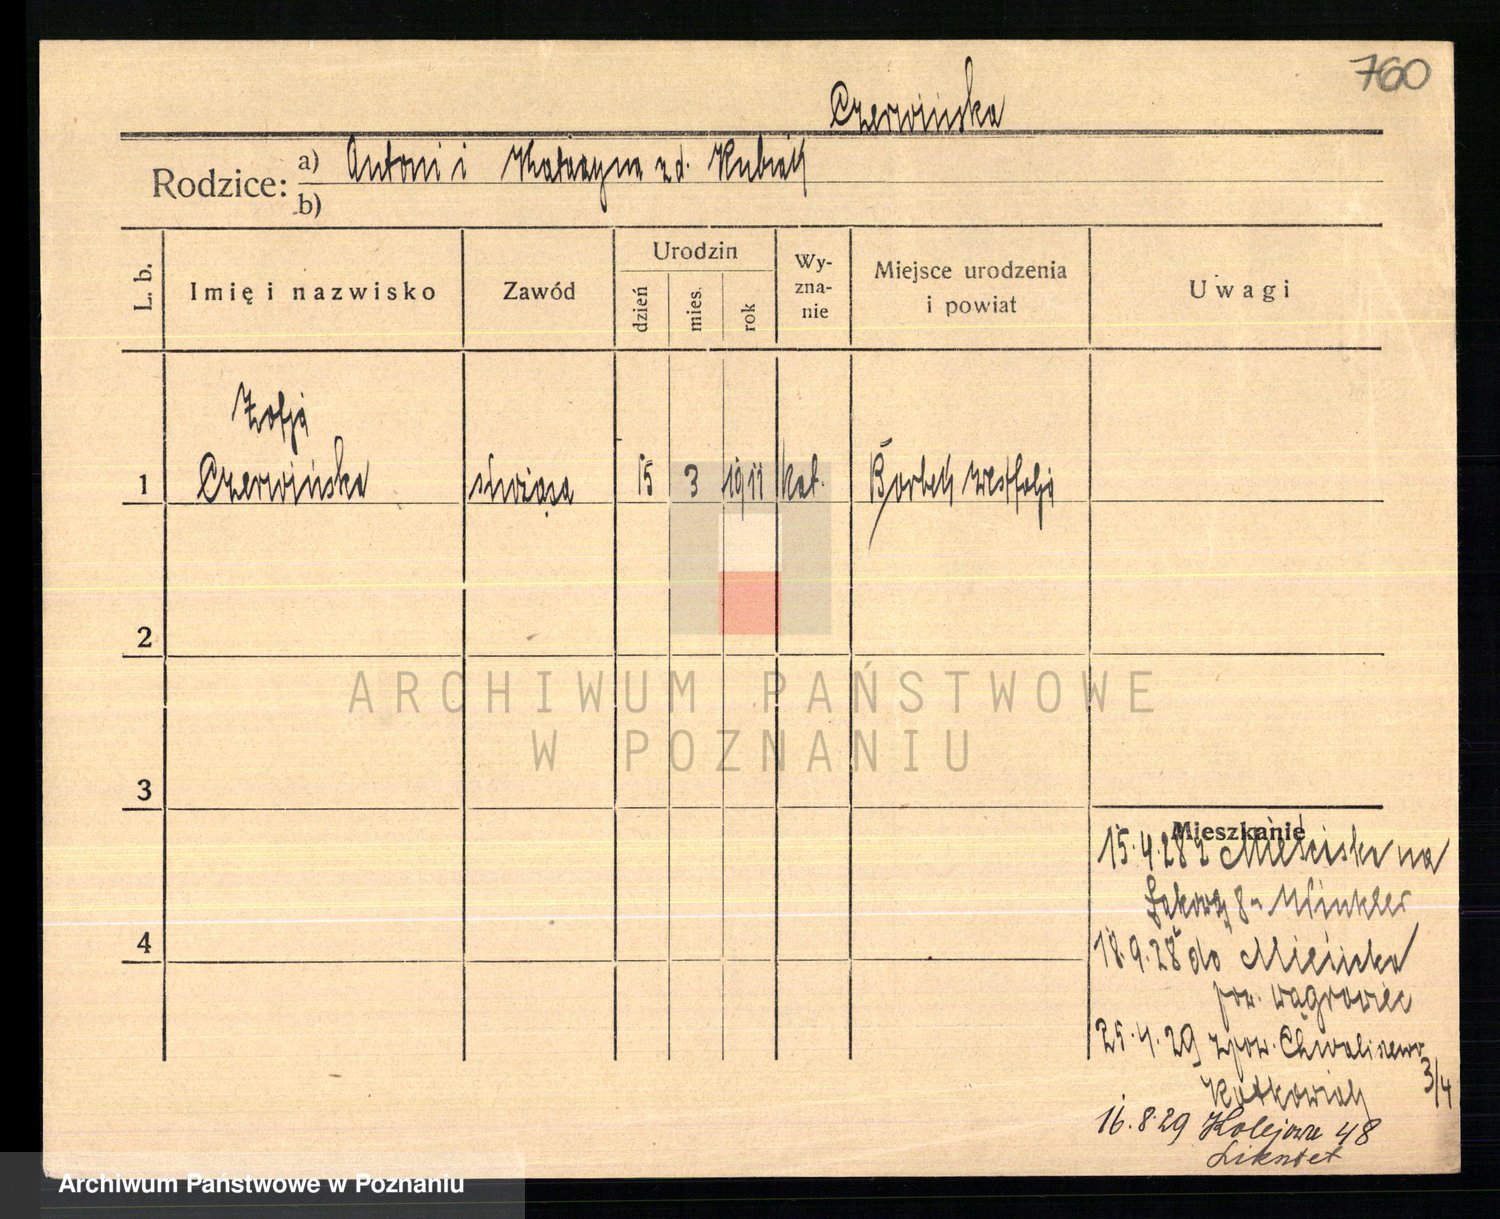 760
Czerwińska
Rodzice: a) Antoni i Katarzyna z d. Kubiak
b)
L. b.
Imię i nazwisko
Zawód
Urodzin
dzień
mies.
rok
Wy-
zna-
nie
Miejsce urodzenia
i powiat
Uwagi
Zofja
1 Czerwińska służąca 15 3 1911 kat. Borbek Westfalja
2
ARCHIWUM PAŃSTWOWE
W POZNANIU
3
Mieszkanie
15.4.28 z Mieściska na
8 Winkler
4
18.9.28 do Mieściska
pow. Wągrowiec
25.4.29 z pow. Chwaliszewo
3/4
Ratkowiak
16.8.29 Kolejowa 48
Archiwum Państwowe w Poznaniu